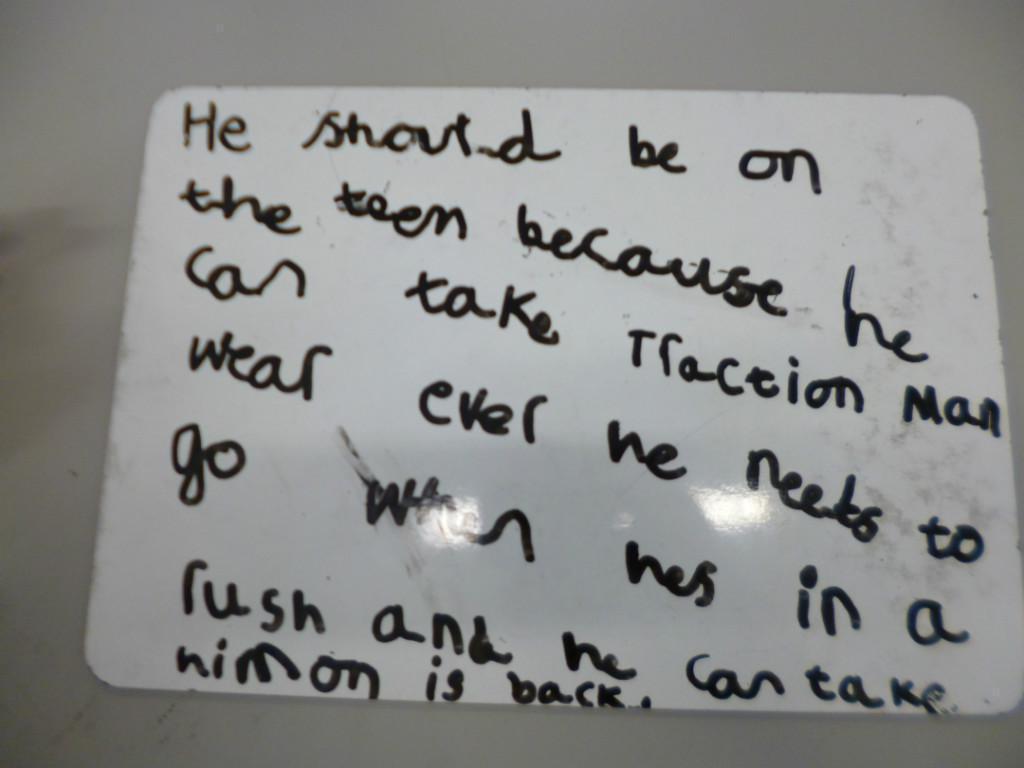 He should be on
the teem because he
can take Traction Man
wear ever he neets to
go when hes in a
rush and he can take
himon on is back.